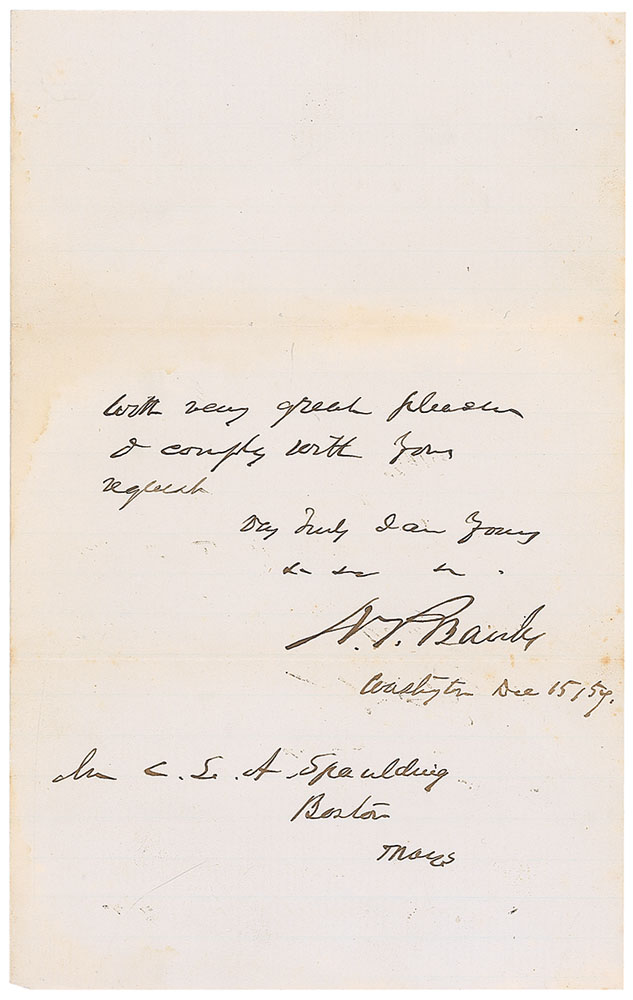 With very great pleasure
I comply with your
request
Very truly I am Yours
&c &c &c.
N. P. Banks
Washington Dec 15/54.
Mr C. E. A Spaulding
Boston
Mass